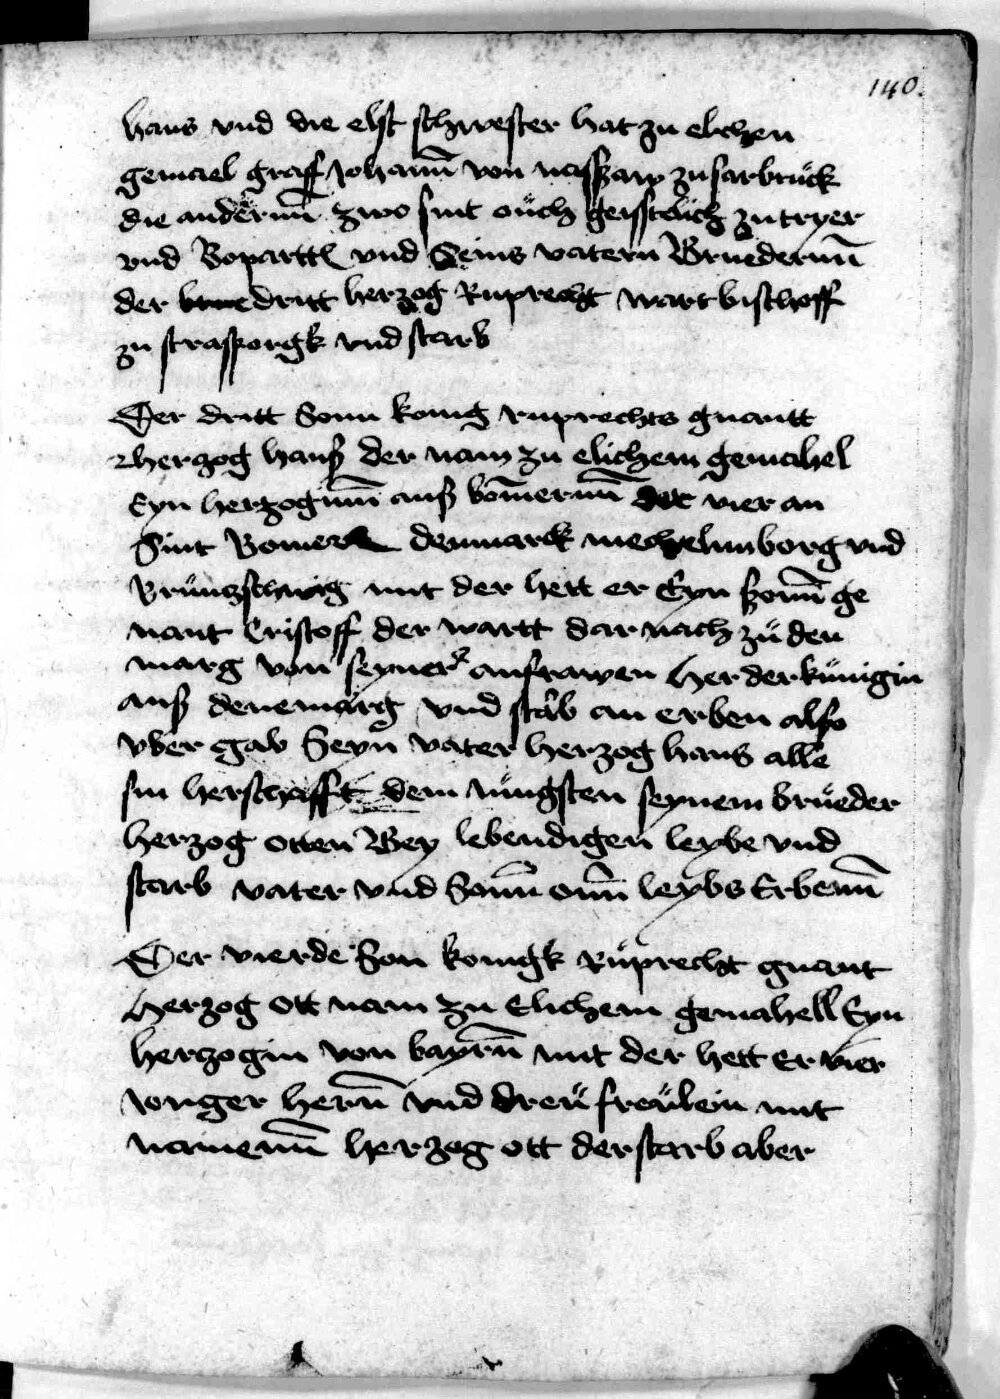 140.
hans vnd die elst schwester hat zu elichen
gemael graff Johann von nassaw zu sarbruck
die andernn zwo sint ouch geistlich zu tryer
vnd Bopartt vnd Seins vatern Bruedernn
der dritt herzog Ruprecht wart bischoff
zu strasporgk vnd starb
Der dritt Sonn konig ruprechts gnantt
herzog hanß der nam zu elichem gemahel
Eyn herzoginn auß bomernn der vier an
Sint Bomern denmarck mechelnnborg vnd
Brunschwig mit der hett er Eyn sonn ge
nant Cristoff der wartt dar nach zu den
marg von seyner anfrawen her der kunigin
auß denemarg vnd starb an erben also
vber gab Seyn vater herzog hans alle
sin herschafft dem iungsten seynem brueder
herzog otten Bey lebendigen leybe vnd
starb vater vnd Sonn onn leybs Erbenn
Der vierde Son konigk Ruprecht gnant
herzog ott nam zu Elichem gemahell Eyn
herzogin von bayrnn mit der hett Er vier
Jonger hernn vnd dreu freulein mit
namenn herzog ott der starb aber